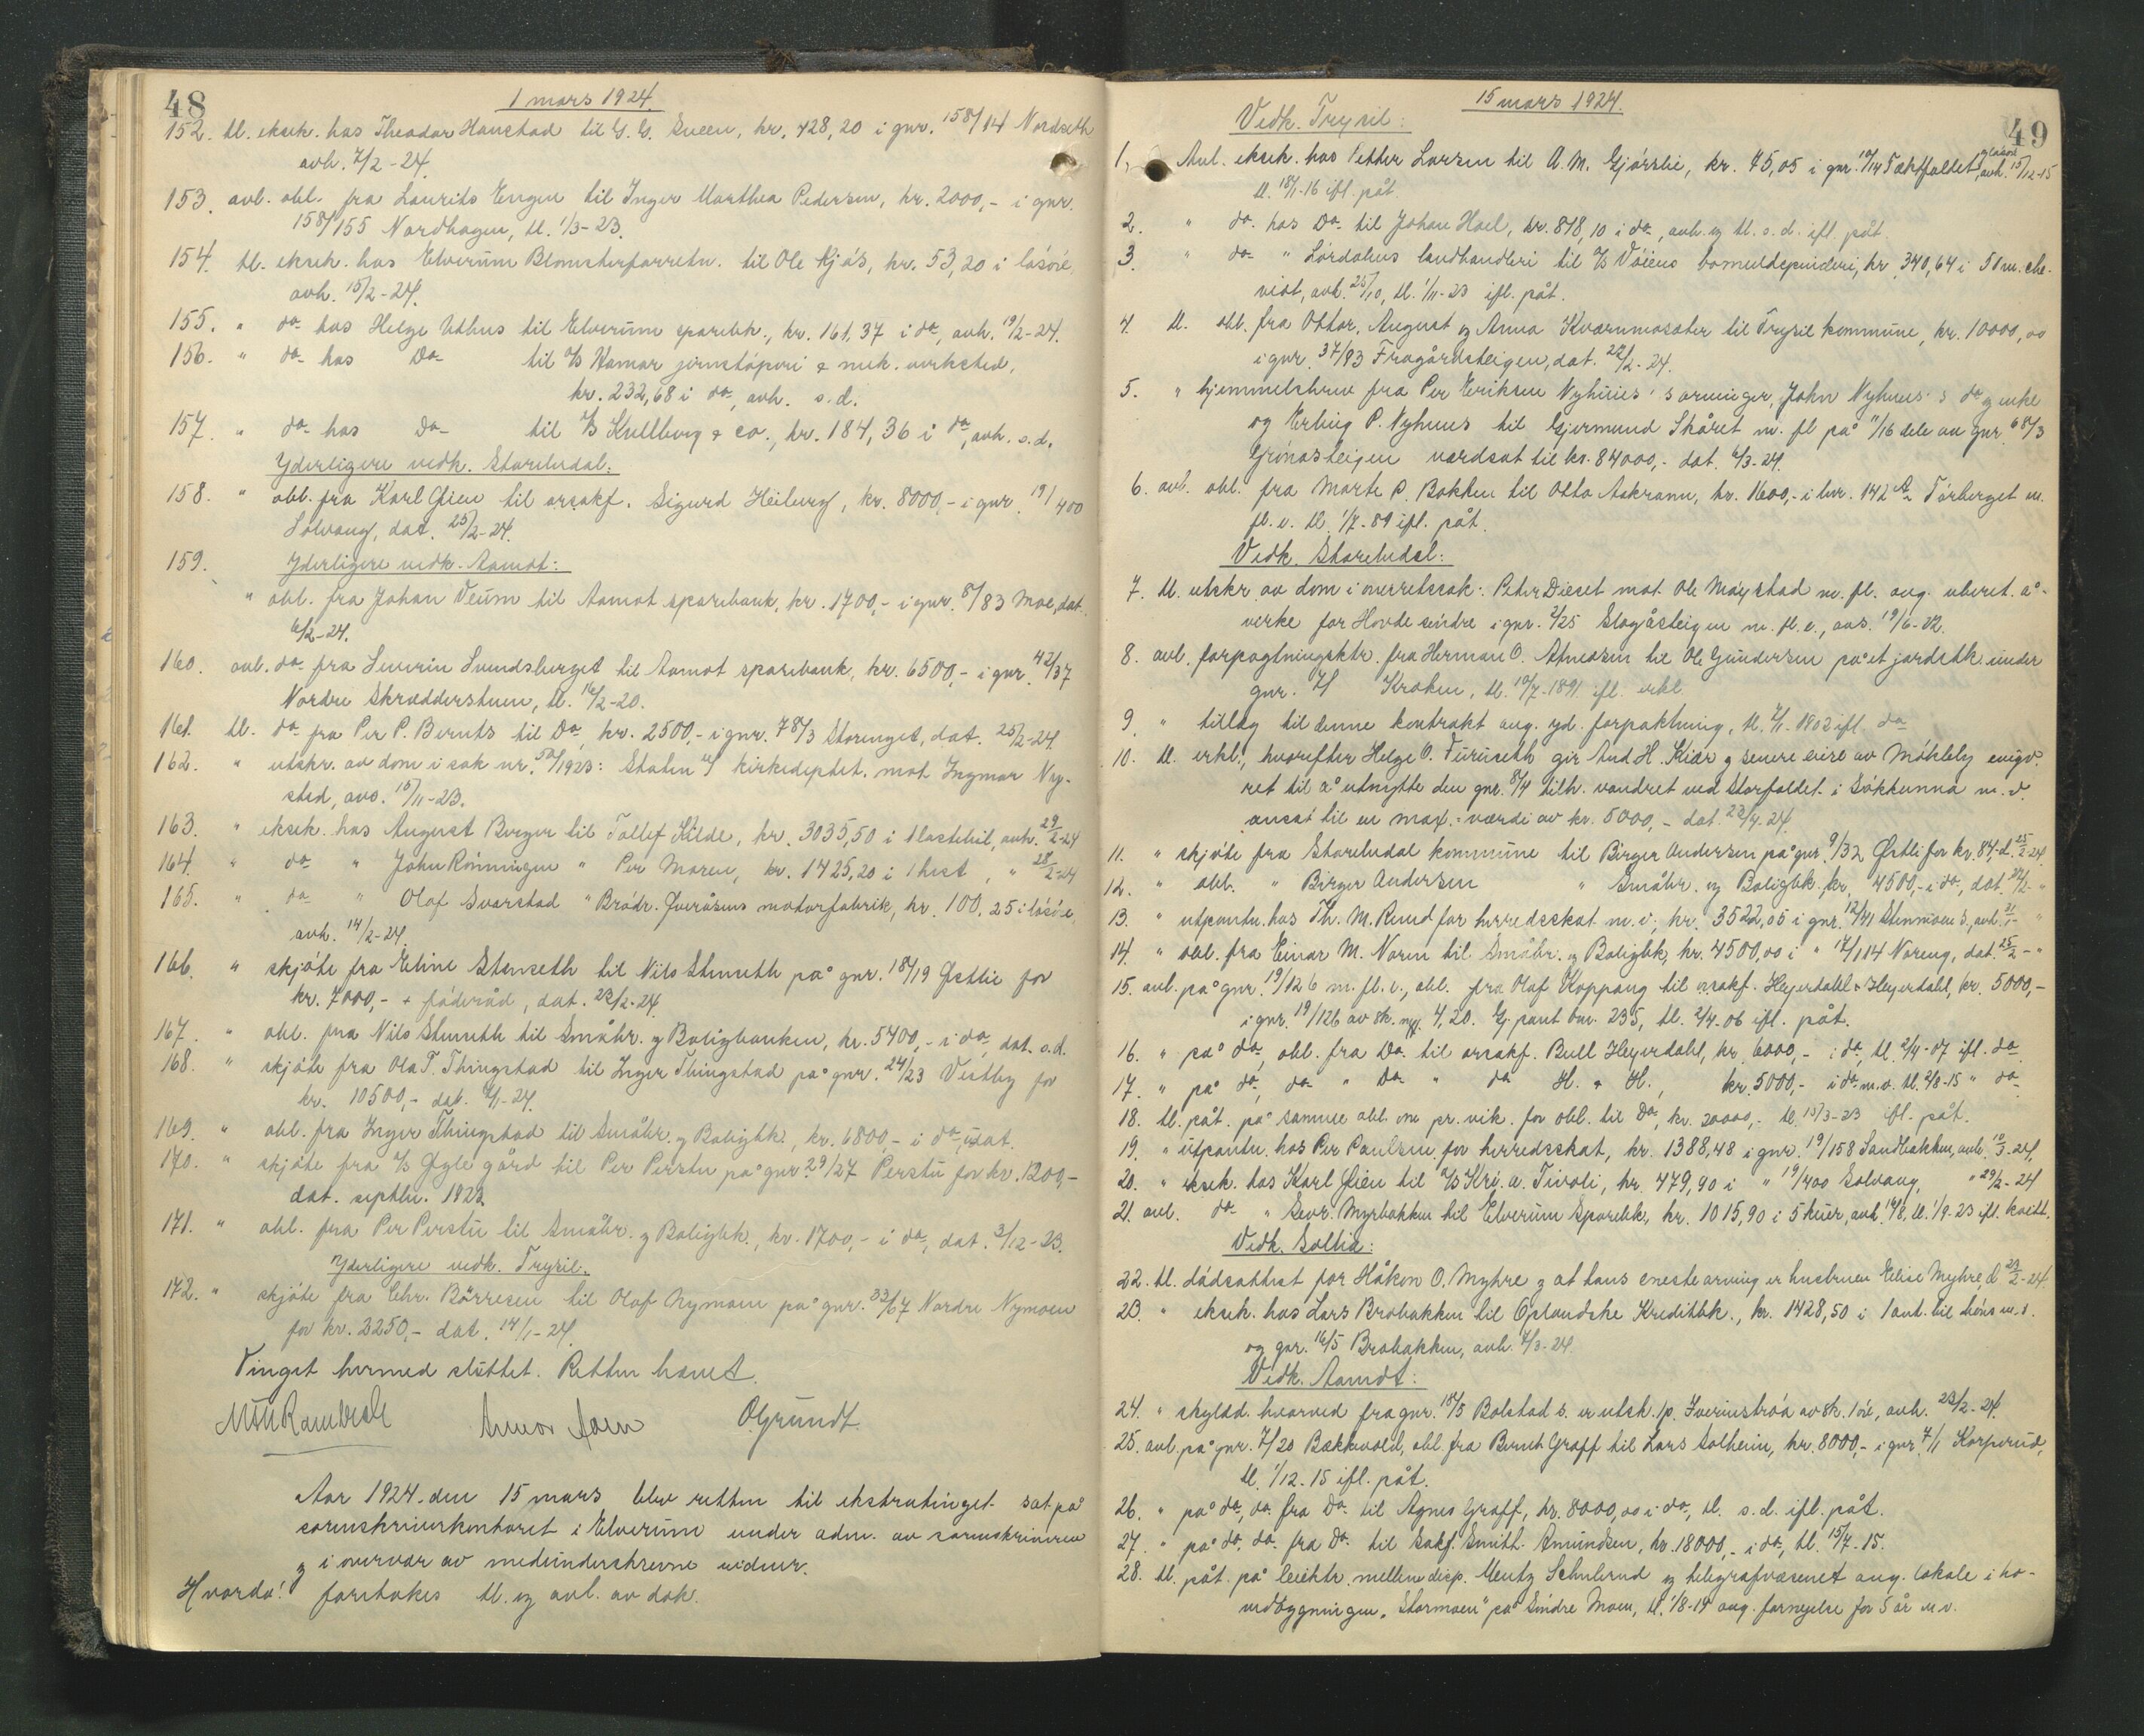 48
1 mars 1924.
152. tl. eksek. hos Theodor Hanstad til G. G. Sveen, kr. 428,20 i gnr. 158/14 Nordseth
avh. 7/2-24.
153. avl. obl. fra Laurits Engen til Inger Marthea Pedersen, kr. 2000,- i gnr.
158/155 Nordhagen, tl. 1/3-23.
154. tl. eksek. hos Elverum Blomsterforretn. til Ole Kjös, kr. 53,20 i lösöre,
avh. 15/2-24.
155. " do hos Helge Uthus til Elverum sparebk., kr. 161,37 i do, avh. 19/2-24.
156. " do hos Do til A/S Hamar jernstöperi & mek. verksted,
kr. 232,68 i do, avh. s.d.
157. " do hos Do til A/S Kullberg & co., kr. 184,36 i do, avh. s.d.
Yderligere vedk. Storelvdal:
158. " obl. fra Karl Öien til orsakf. Sigurd Heiberg, kr. 8000,- i gnr. 19/400
Solvang, dat. 25/2-24.
159. Yderligere vedk. Aamot:
" obl. fra Johan Veum til Aamot sparebank, kr. 1700,- i gnr. 8/83 Moe, dat.
6/2-24.
160. avl. do fra Severin Svendsberget til Aamot sparebank, kr. 6500,- i gnr. 42/37
Nordre Skrædderstuen, tl. 16/2-20.
161. tl. do fra Per P. Bernts til Do, kr. 2500,- i gnr. 78/3 Storenget, dat. 25/2-24.
162. " utskr. av dom i sak nr. 50/1923: Staten v/ kirkedeptet. mot Ingmar Ny-
sted, avs. 15/11-23.
163. " eksek. hos August Berger til Tollef Kilde, kr. 3035,50 i 1 lastebil, avh. 29/2-24
164. " do " John Rönningen " Per Moren, kr. 1425,20 i 1 hest, " 28/2-24
165. " do " Olaf Svarstad " Brödr. Överåsens motorfabrik, kr. 100,25 i lösöre,
avh. 14/2-24.
166. " skjöte fra Eline Stenseth til Nils Stenseth på gnr. 18/19 Östlie for
kr. 7000,- + föderåd, dat. 23/2-24.
167. " obl. fra Nils Stenseth til Småbr. og Boligbanken, kr. 5400,- i do, dat. s.d.
168. " skjöte fra Ola T. Thingstad til Inger Thingstad på gnr. 24/23 Vestby for
kr. 10500,- dat. 4/1-24.
169. " obl. fra Inger Thingstad til Småbr. og Boligbk., kr. 6800,- i do, udat.
170. " skjöte fra A/S Öyle gård til Per Perstu på gnr. 29/27 Perstu for kr. 1200,-
dat. septbr. 1923.
171. " obl. fra Per Perstu til Småbr. og Boligbk., kr. 1700,- i do, dat. 3/12-23.
Yderligere vedk. Trysil.
172. " skjöte fra Chr. Börresen til Olaf Nymoen på gnr. 33/67 Nordre Nymoen
for kr. 3250,- dat. 14/1-24.
Tinget hermed sluttet. Retten hævet.
O. Grundt
Aar 1924 den 15 mars blev retten til ekstratinget sat på
sorenskriverkontoret i Elverum under adm. av sorenskriveren
og i overvær av medunderskrevne vidner.
Hvorda! foretokes tl. og avl. av dok.
49
15 mars 1924.
Vedk. Trysil:
1. Avl. eksek. hos Petter Larsen til A. M. Gjörslie, kr. 45,05 i gnr. 10/14 avh. 15/12-15
tl. 18/1-16 ifl. påt.
2. " do hos Do til Johan Hoel, kr. 818,10 i do, avh. og tl. s.d. ifl. påt.
3. " do " Lördahls landhandleri til A/S Vöiens bomuldspinderi, kr. 340,64 i 50 m. che-
viot, avh. 25/10, tl. 1/11-23 ifl. påt.
4. tl. obl. fra Ottar, August og Anna Kværnmosæter til Trysil kommune, kr. 10000,00
i gnr. 37/83 Fragårdsteigen, dat. 22/2-24.
5. " hjemmelsbrev fra Per Eriksen Nyhuus's arvinger, John Nyhuus's do og enke
og Erling P. Nyhuus til Gjermund Skåret m. fl på 11/16 dele av gnr. 68/3
Grönosteigen værdsat til kr. 84000,- dat. 6/3-24.
6. avl. obl. fra Marte P. Bakken til Otto Aakrann, kr. 1600,- i lnr. 142 a Törberget m.
fl. e. tl. 1/7-89 ifl. påt.
Vedk. Storelvdal:
7. tl. utskr. av dom i overretssak: Peter Dieset mot Ole Möystad m. fl. ang. uberet. a-
virke for Hovde söndre i gnr. 2/25 Slogåsteigen m. fl. e., avs. 19/6-22.
8. avl. forpagtningsktr. fra Herman O. Atneosen til Ole Gundersen på et jordstk. under
gnr. 7/1 Kroken, tl. 10/7-1891 ifl. erkl.
9. " tillæg til denne kontrakt ang. yd. forpaktning, tl. 7/1-1902 ifl. do
10. tl. erkl., hvorefter Helge O. Furuseth gir And H. Kiær og senere eiere av Möklebyevigv.
ret til å utnytte den gnr. 8/4 tilh. vandret ved Storfaldet i Sökkunna m.v.
ansat til en max.-værdi av kr. 5000,- dat. 23/4-24.
11. " skjöte fra Storelvdal kommune til Birger Andersen på gnr. 9/32 Östli for kr. 84,- d. 25/2-24.
12. " obl. " Birger Andersen " Småbr. og Boligbk. kr. 4500,- i do, dat. "
13. " utpantn. hos Th. M. Ruud for herredsskat m.v., kr. 3522,05 i gnr. 12/41 Stenmoen s., avh. "
14. " obl. fra Einar M. Noren til Småbr. og Boligbk, kr. 4500,00 i " 17/114 Noreng, dat. 25/2-"
15. avl. på gnr. 19/126 m. fl. e., obl. fra Olaf Koppang til orsakf. Heyerdahl & Heyerdahl, kr. 5000,-
i gnr. 19/126 av sk. 4,20. Gj. pant bnr. 235, tl. 2/4-06 ifl. påt.
16. " på do, obl. fra Do til orsakf. Bull Heyerdahl, kr. 6000,- i do, tl. 2/4-07 ifl. do
17. " på do, do " Do " do H. & H., kr. 5000,- i do m.v. tl. 2/8-15 " do
18. tl. påt. på samme obl. om pr. vik. for obl. til Do, kr. 20000,- tl. 15/3-23 ifl. påt.
19. " utpantn. hos Per Paulsen for herredsskat, kr. 1388,48 i gnr. 19/158 Sandbakken, avh. 10/3-24.
20. " eksek. hos Karl Öien til A/S Kra. Tivoli, kr. 479,90 i " 19/400 Solvang, " 29/2-24
21. avl. do " Sevr. Myrbakken til Elverum Sparebk, kr. 1015,90 i 5 kuer, avh. 14/8, tl. 1/9-23 ifl. kvitt.
Vedk. Sollia:
22. tl. dödsattest for Håkon O. Myhre og at hans eneste arving er hustruen Eline Myhre, d. 29/2-24.
23. " eksek. hos Lars Brobakken til Oplandske Kreditbk., kr. 1428,50 i 1 ant. bil m.v.
og gnr. 16/5 Brobakken, avh. 7/3-24.
Vedk. Aamot:
24. " skyldd. hvorved fra gnr. 18/5 Bolstad s. er utsk. 1 p. Iverinströa av sk. 1 öre, avh. 23/2-24.
25. avl. på gnr. 7/20 Bækkevold, obl. fra Bernt Graff til Lars Solheim, kr. 8000,- i gnr. 7/1 Korperud,
tl. 1/12-15 ifl. påt.
26. " på do, do fra Do til Agnes Graff, kr. 8000,00 i do, tl. s.d. ifl. påt.
27. " på do, do fra Do til Sakf. Smith-Amundsen, kr. 18000,- i do, tl. 15/7-15.
28. tl. påt. på leiektr. mellem disp. Mentz Schulerud og telegrafvæsenet ang. lokale i ho-
vedbygningen "Stormoen" på Söndre Moen, tl. 1/8-19 ang. fornyelse for 5 år m.v.